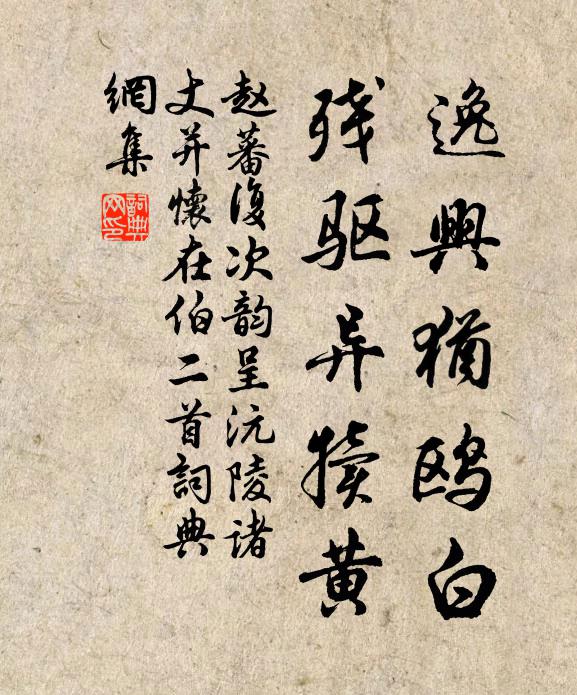 逸興猶鸥白
残驱异犢黄
赵蕃復次韵呈沅陵诸
丈并懷在伯二首詞典
網集
詞典
网印